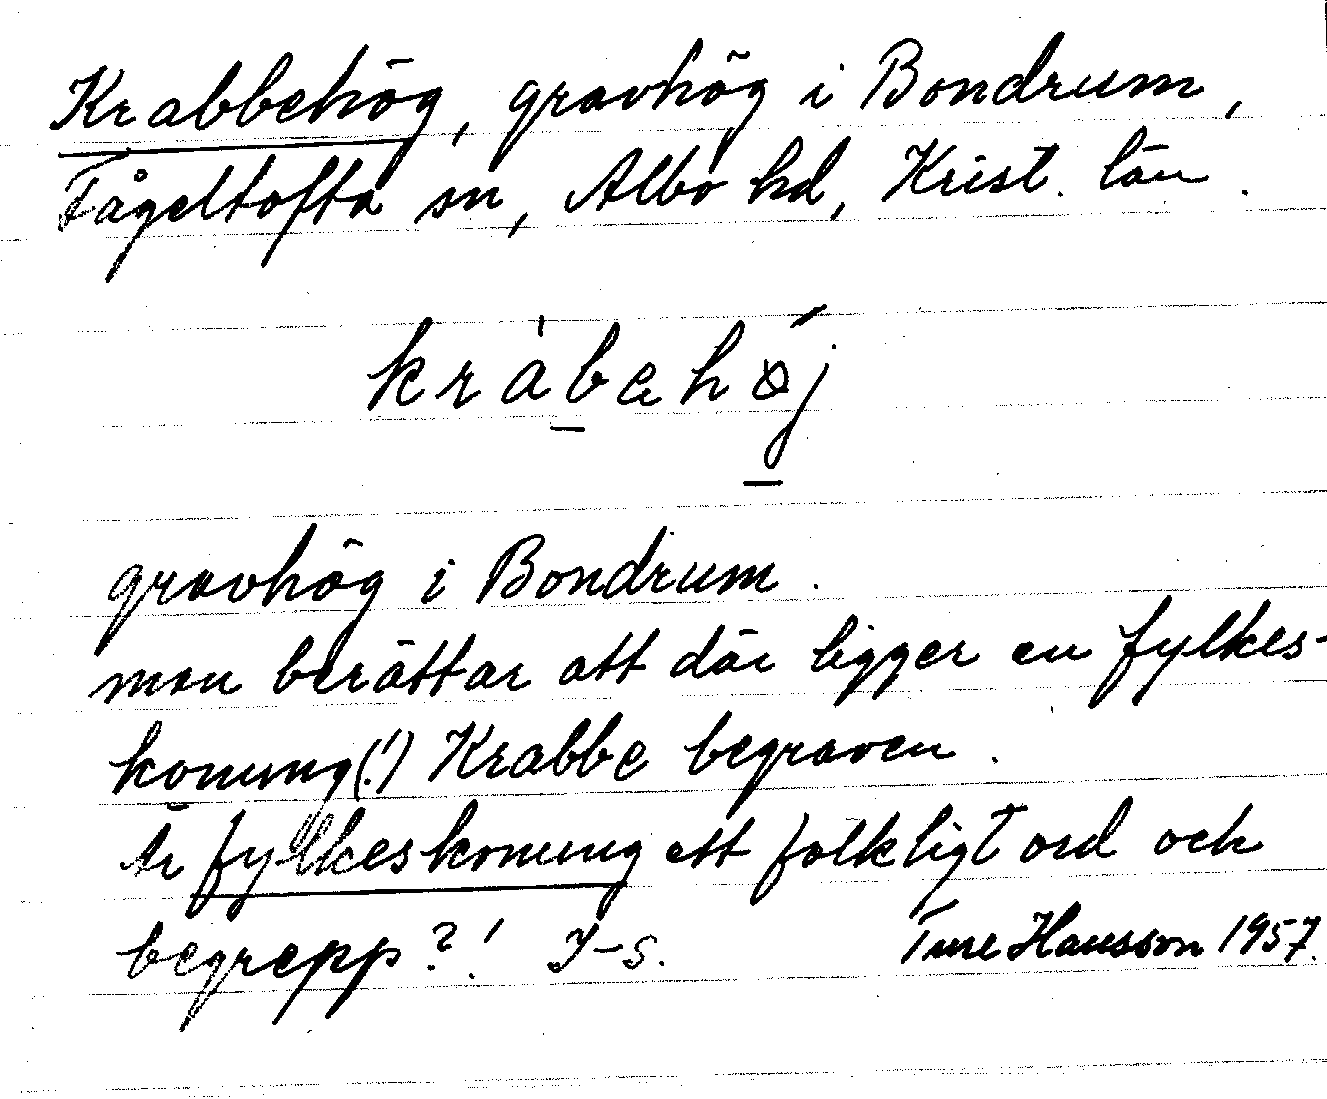 Krabbehög, gravhög i Bondrum,
Fågeltofta sn, Albo hd, Krist. län.
kràbehǿj
gravhög i Bondrum.
man berättar att där ligger en fylkes-
konung(!) Krabbe begraven.
Är fylkeskonung ett folkligt ord och
begrepp?! I-s. Ture Hansson 1957.